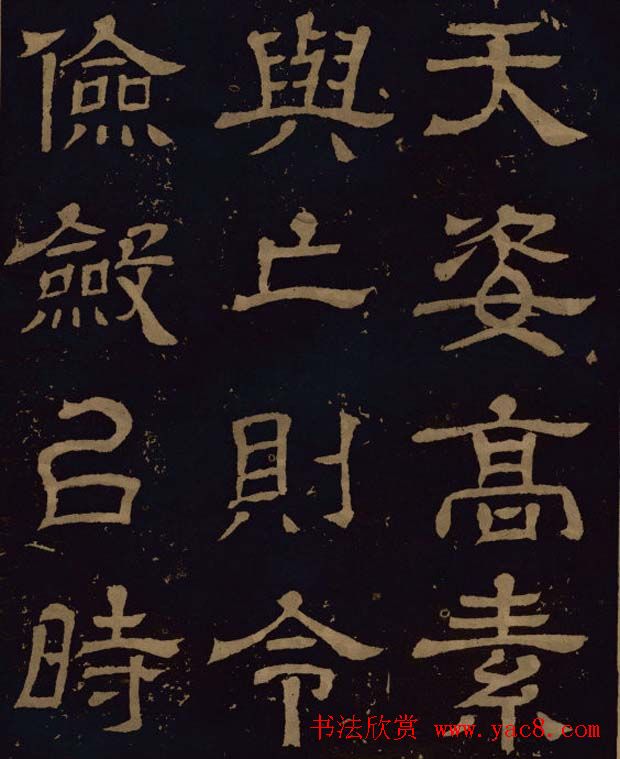 天姿高素
與亡則令
儉斂㠯時
书法欣赏 www.yac8.com